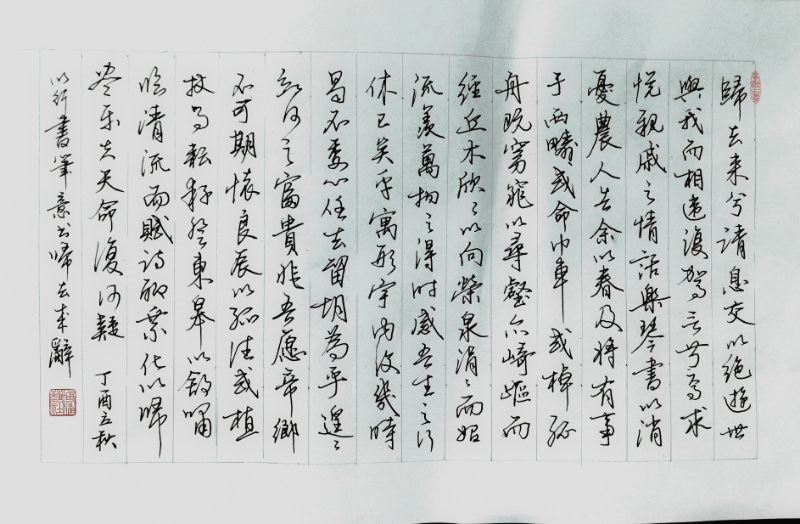 歸去來兮請息交以絕遊世
與我而相違復駕言兮焉求
悅親戚之情話樂琴書以消
憂農人告余以春及將有事
于西疇或命巾車或棹孤
舟既窈窕以尋壑亦崎嶇而
經丘木欣々以向榮泉涓々而始
流羨萬物之得時感吾生之行
休已矣乎寓形宇內復幾時
曷不委心任去留胡為乎遑々
欲何之富貴非吾願帝鄉
不可期懷良辰以孤往或植
杖而耘耔登東皋以舒嘯
臨清流而賦詩聊乘化以歸
盡樂夫天命復何疑 丁酉立秋
以行書筆意書歸去來辭